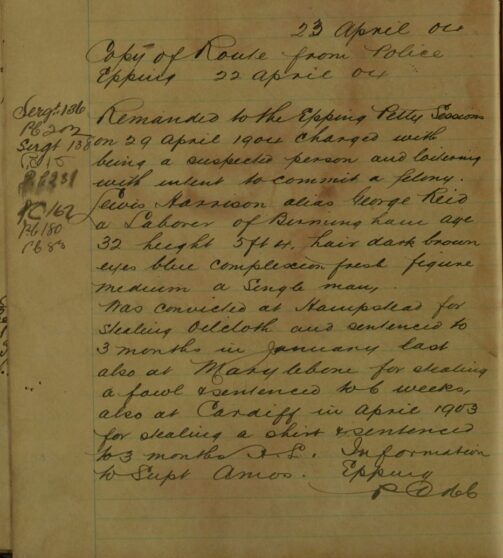 23 April 04
Copy of Route from Police
Epping 22 April 04
Sergt 136
PC 202
Sergt 138
PC 162
PC 180
PC 83
Remanded to the Epping Petty Sessions
on 29 April 1904 charged with
being a suspected person and loitering
with intent to commit a felony.
Lewis Harrison alias George Reid
a Laborer of Birmingham age
32 height 5ft 4, hair dark brown
eyes blue complexion fresh figure
medium a Single man,
Was convicted at Hampstead for
stealing Oilcloth and sentenced to
3 months in January last
also at Marylebone for stealing
a fowl & sentenced to 6 weeks,
also at Cardiff in April 1903
for stealing a shirt & sentenced
to 3 months H.L. Information
to Supt Amos. Epping